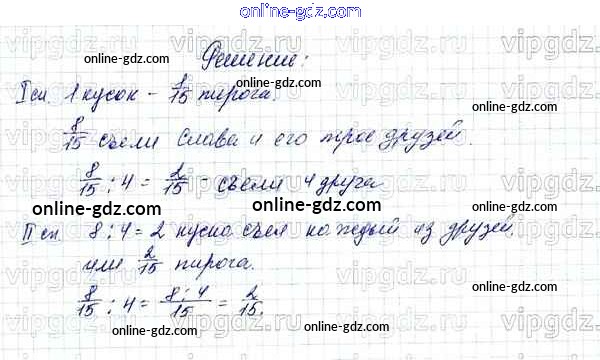 online-gdz.com
Решение:
I сп. 1 кусок – 1/15 пирога.
8/15 съели Слава и его трое друзей.
8/15 : 4 = 2/15 – съели 4 друга
II сп. 8 : 4 = 2 куска съел каждый из друзей,
или 2/15 пирога.
8/15 : 4 = 8:4/15 = 2/15.
online-gdz.com
online-gdz.com
online-gdz.com
online-gdz.com
online-gdz.com
online-gdz.com
online-gdz.com
online-gdz.com
online-gdz.com
online-gdz.com